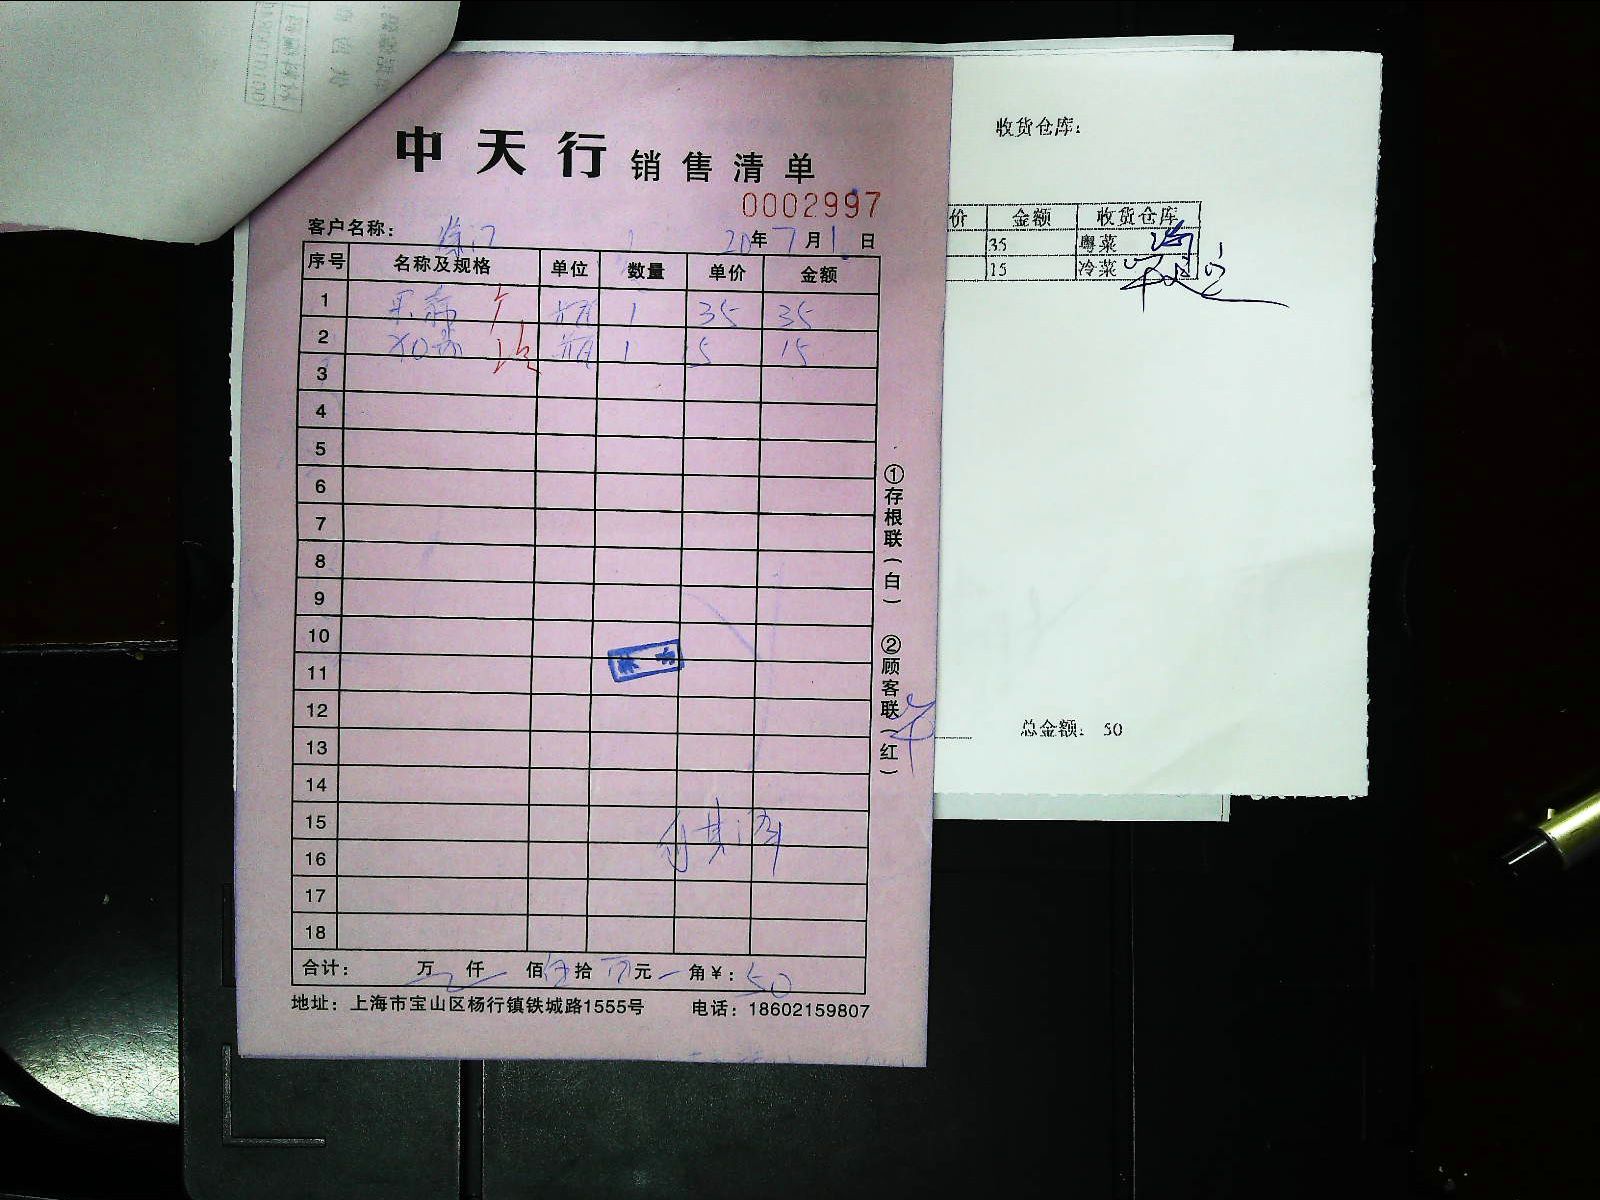 中天行 销售清单
0002997
客户名称：
20年7月1日
序号 名称及规格 单位 数量 单价 金额
1 瓶 1 35 35
2 瓶 1 5 15
3
4
5
6
7
8
9
10
11
12
13
14
15
16
17
18
合计： 万 仟 佰伍拾 元 角¥：50
地址：上海市宝山区杨行镇铁城路1555号 电话：18602159807
①存根联（白） ②顾客联（红）
收货仓库：
价 金额 收货仓库
35 粤菜
15 冷菜
总金额： 50